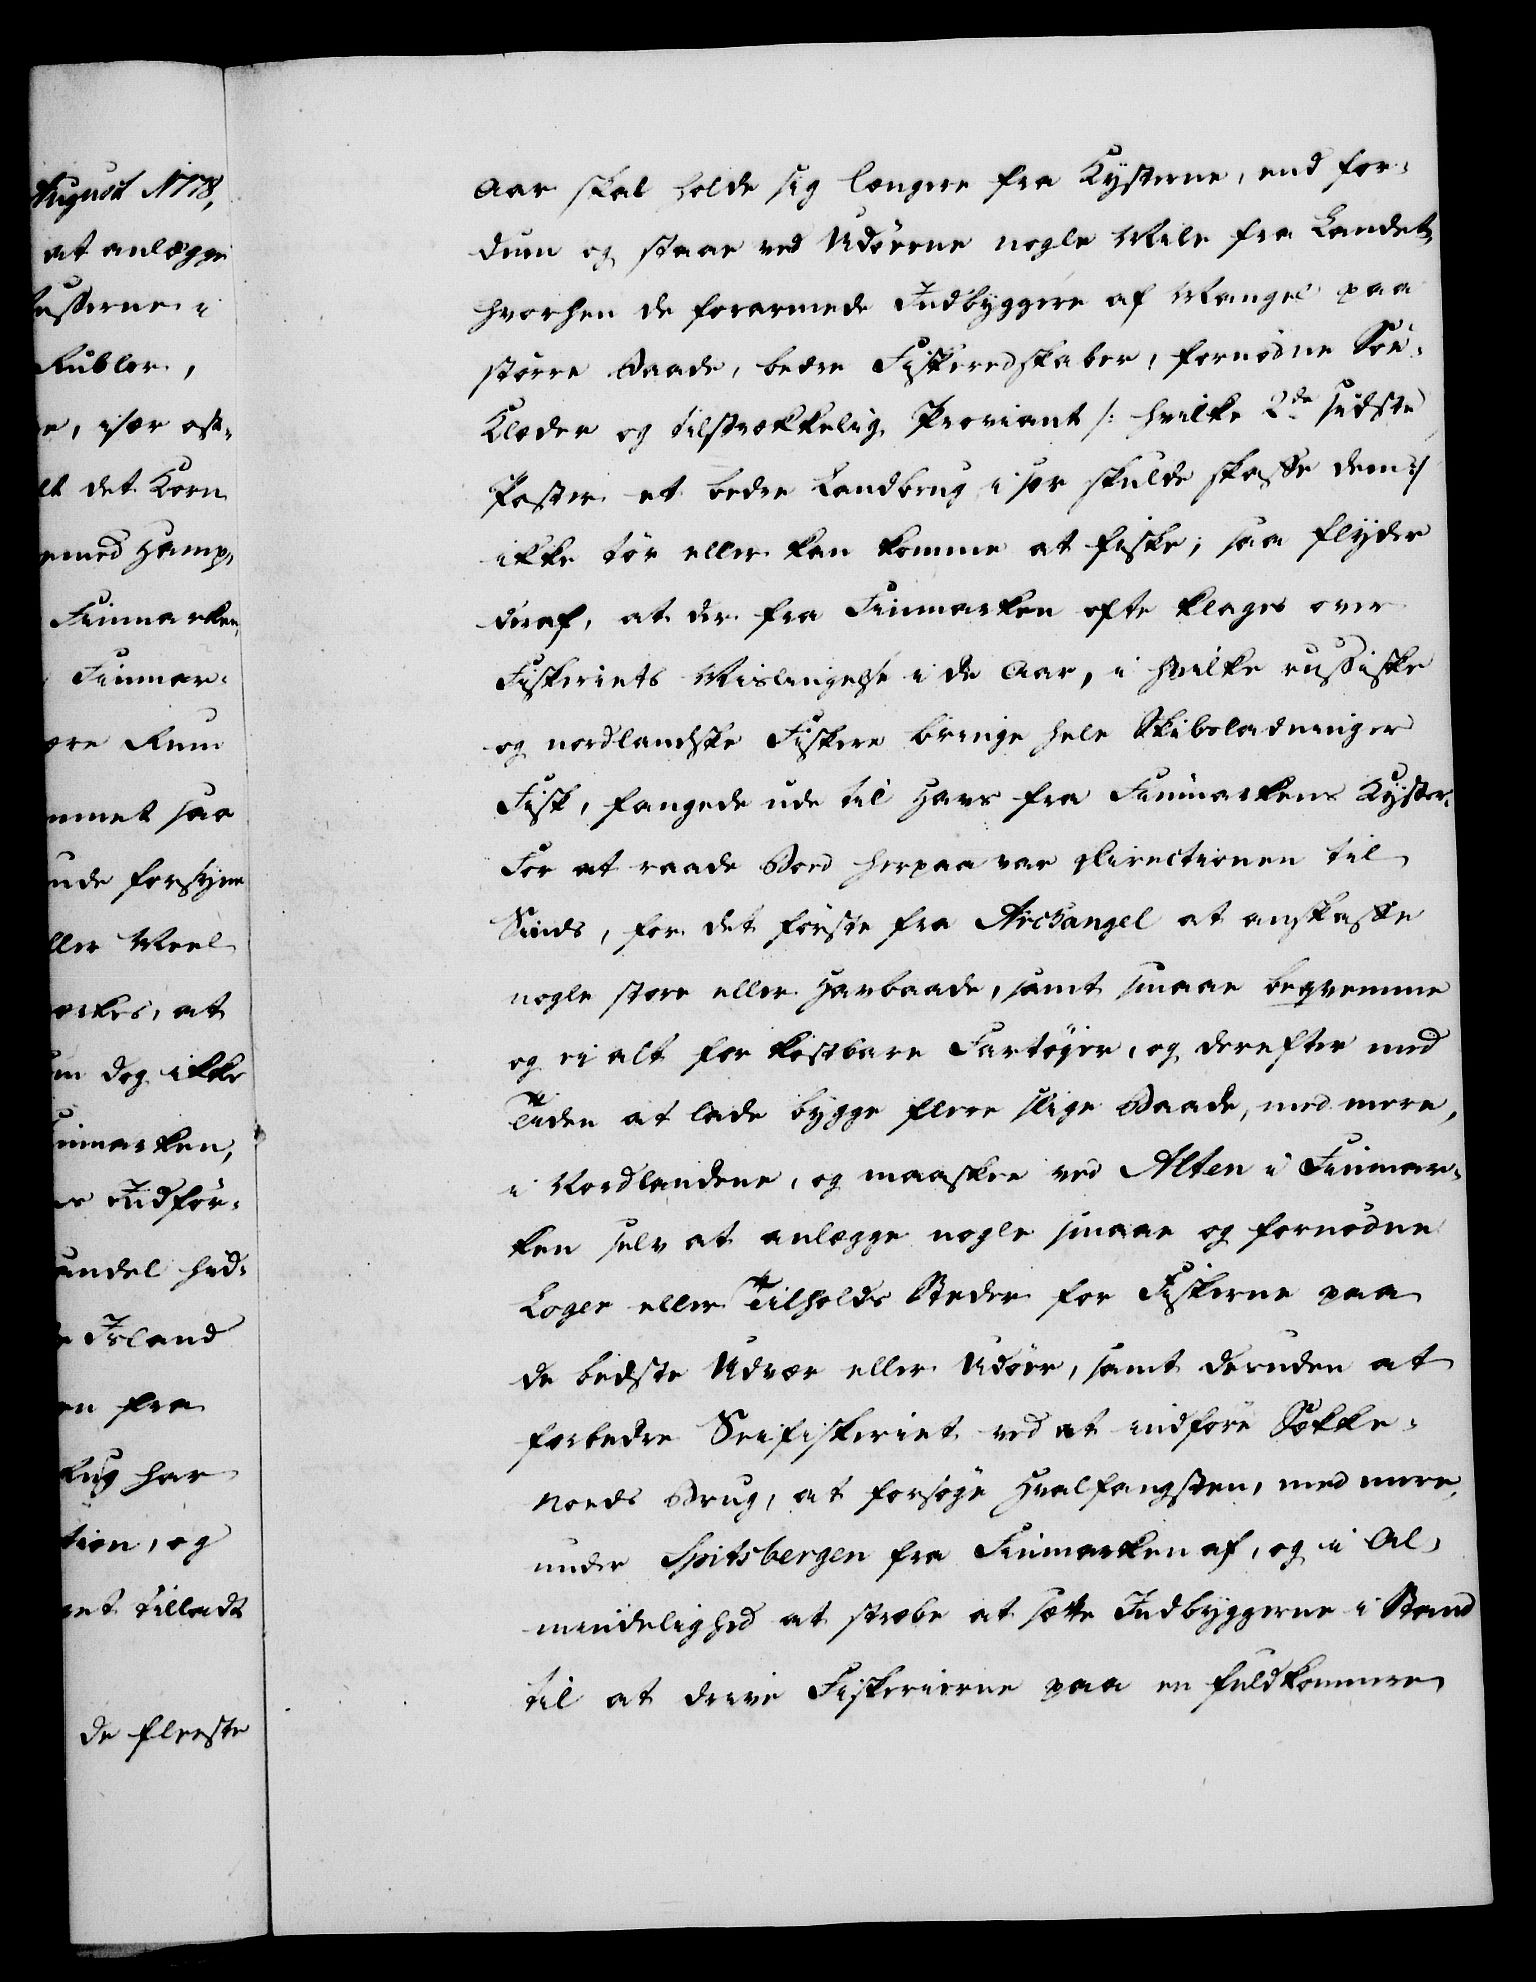 August 1778,
at anlægge
usserne i
Rubler,
e, især ost-
lt det Korn
med Hamp,
Finmarken,
Finmar-
re Rum
mmet saa
nde forsyne
ller Meel
rkes, at
m dog ikke
inmarken,
Indfør-
andel hid-
Island
en fra
kug har
tion, og
et tilladt
de fleeste
Aar skal holde sig længere fra Kysterne, end for-
dum og staae ved Udøerne nogle Mile fra Landet,
hvorhen de forarmede Indbyggere af Mangel paa
större Baade, bedre Fiskeredskaber, fornødne Søe-
Klæder og tilstrækkelig Proviant /: hvilke 2de sidste
Poster et bedre Landbrug især skulde skaffe dem :/
ikke tör eller kan komme at fiske; saa flyder
deraf, at der fra Finmarken ofte klages over
Fiskeriets Mislingelse i de Aar, i hvilke russiske
og nordlandske Fiskere bringe hele Skibsladninger
Fisk, fangede ude til Havs fra Finmarkens Kyster.
For at raade Bod herpaa var Directionen til
Sinds, for det første fra Archangel at anskaffe
nogle store eller Havbaade, samt smaae beqvemme
og ei alt for kostbare Fartøjer, og derefter med
Tiden at lade bygge flere slige Baade, med mere,
i Nordlandene, og maaskee ved Alten i Finmar-
ken selv at anlægge nogle smaae og fornødne
Loger eller Tilholds Steder for Fiskerne paa
de bedste Udvær eller Udøer, samt desuden at
forbedre Seifiskeriet ved at indføre Søkke-
Noeds Brug, at forsøge Hvalfangsten, med mere,
under Spitsbergen fra Finmarken af, og i Al-
mindelighed at stræbe at sætte Indbyggerne i Stand
til at drive Fiskerierne paa en fuldkommere